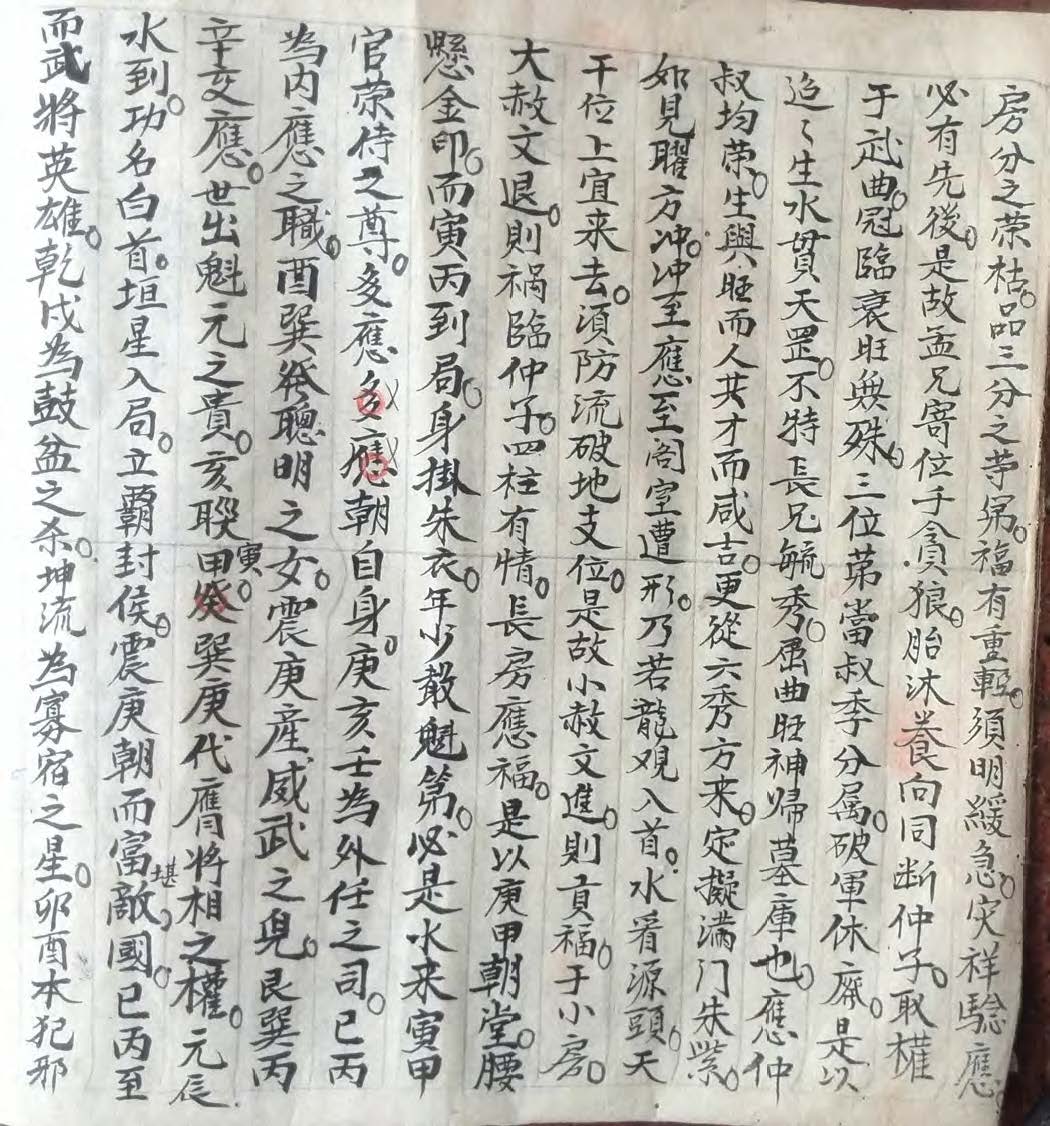 房分之荣枯。品三分之苐㐧。福有重輊。須明緩急。灾祥驗應。
必有先後。是故孟兄寄位乎貪狼。胎沐養向同断仲子。取權
于武曲。冠臨衰旺無殊。三位苐當叔季分属。破軍休廢。是以
迢〻生水貫天罡。不特長兄毓秀。屈曲旺神帰墓庫也。應仲
叔均荣。生與旺而人共才而咸吉。更從六秀方来。定擬满门朱紫。
如見曜方冲。冲至應至阁室遭形。乃若龍观入首。水看源頭。天
干位上宜来去。須防流破地支位。是故小赦文進。則貢福于小房。
大赦文退。則祸臨仲子。四柱有情。長房應福。是以庚甲朝堂。腰
懸金印。而寅丙到局。身掛朱衣。年少敢魁第。必是水来寅甲
官荣侍之尊。多應多應朝自身。庚亥壬為外任之司。巳丙
為内應之職。酉巽癸聰明之女。震庚産威武之兒。艮巽丙
辛交應。世出魁元之貴。亥聫甲癸寅。巽庚代膺将相之權。元辰
水到。功名白首。垣星入局。立覇封侯。震庚朝而富堪敵國。巳丙至
而武將英雄。乾戌為鼓盆之杀。坤流為寡宿之星。卯酉本犯邪